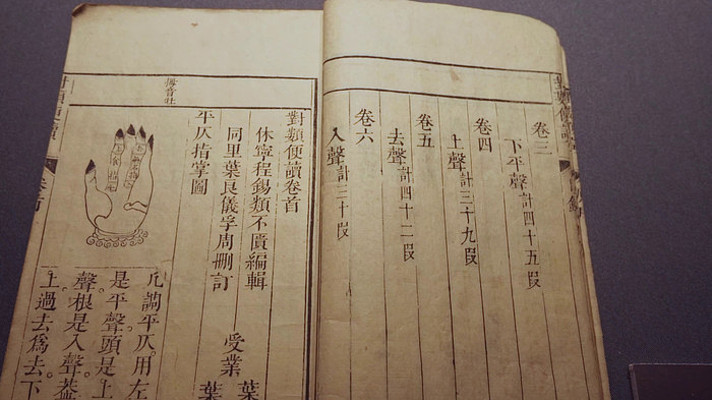 卷三
下平聲計四十五段
卷四
上聲計三十九段
卷五
去聲計四十二段
卷六
入聲計三十段
對類便讀卷首
休寧程錫類不匱編輯
同里葉良儀孚周刪訂
受業葉
葉
平仄指掌圖
凢調平仄。用左
是平聲。頭是上
聲。根是入聲。葢
上過去爲去。下